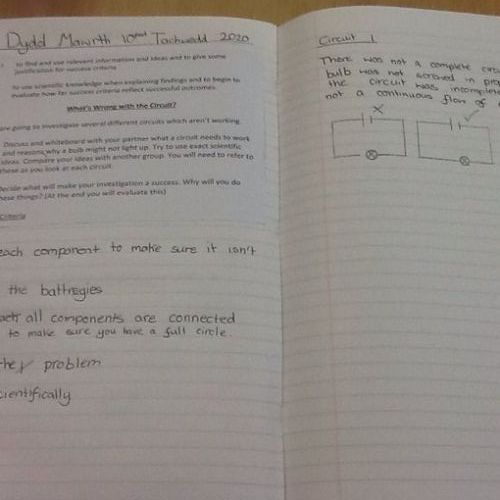 Dydd Mawrth 10fed Tachwedd 2020
to find and use relevant information and ideas and to give some
justification for success criteria
to use scientific knowledge when explaining findings and to begin to
evaluate how far success criteria reflect successful outcomes.
What's Wrong with the Circuit?
are going to investigate several different circuits which aren't working.
Discuss and whiteboard with your partner what a circuit needs to work
and reasons why a bulb might not light up. Try to use exact scientific
ideas. Compare your ideas with another group. You will need to refer to
these as you look at each circuit.
Decide what will make your investigation a success. Why will you do
these things? (At the end you will evaluate this)
Criteria
each component to make sure it isn't
the battregies
all components are connected
to make sure you have a full circle.
the problem
scientifically
Circuit 1
There was not a complete
bulb was not screwed in
the circuit was
not a continuous flow of